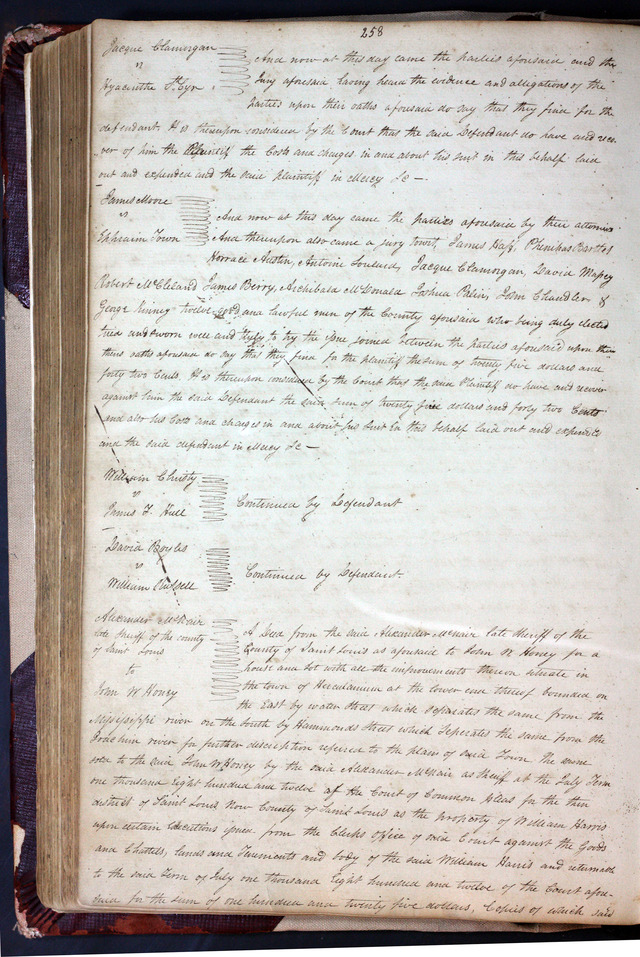 258
Jacque Clamorgan
vs
Hyacinthe St Cyr
And now at this day came the parties aforesaid and the
Jury aforesaid having heard the evidence and allegations of the
parties upon their oaths aforesaid do say that they find for the
defendant. It is thereupon considered by the Court that the said Defendant do have and reco-
ver of him the Plaintiff the Costs and charges in and about his suit in this behalf laid
out and expended and the said plaintiff in Mercy &c —
James Moore
vs
Ephraim Town
And now at this day came the parties aforesaid by their attornies
And thereupon also came a jury towit, James Hass, Phenihas Bartlet
Horrace Austin, Antoine Soulard, Jacque Clamorgan, David Massey
Robert McCleland James Berry, Archibald McDonald Joshua Palin, John Chandler &
George Kinney twelve good and lawful men of the County aforesaid who being duly elected
tried and sworn well and truly to try the issue joined between the parties aforesaid upon their
oaths aforesaid do say that they find for the plaintiff the sum of twenty five dollars and
forty two Cents. It is thereupon considered by the Court that the said Plaintiff do have and recover
against him the said Defendant the said sum of twenty five dollars and forty two Cents
and also his Costs and charges in and about his suit in this behalf laid out and expended
and the said defendant in Mercy &c —
William Christy
vs
James F. Hull
Continued by Defendant
David Boyles
vs
William Russell
Continued by Defendant.
Alexander McNair
late Sheriff of the county
of Saint Louis
to
John W Honey
A Deed from the said Alexander McNair late Sheriff of the
County of Saint Louis as aforesaid to John W Honey for a
house and lot with all the improvements thereon situate in
the town of Herculaneum at the lower end thereof bounded on
the East by water Street which separates the same from the
Mississippi river on the South by Hammonds Street which Seperates the same from the
Joachim river for further description refered to the plan of said Town the same
sold to the said John W Honey by the said Alexander McNair as Sheriff at the July Term
one thousand Eight hundred and twelve of the Court of Common pleas for the then
district of Saint Louis Now County of Saint Louis as the property of William Harris
upon certain Executions issued from the Clerks office of said Court against the Goods
and Chattels, lands and Tenements and body of the said William Harris and returnable
to the said term of July one thousand Eight hundred and twelve of the Court afore-
said for the sum of one hundred and twenty five dollars, Copies of which said